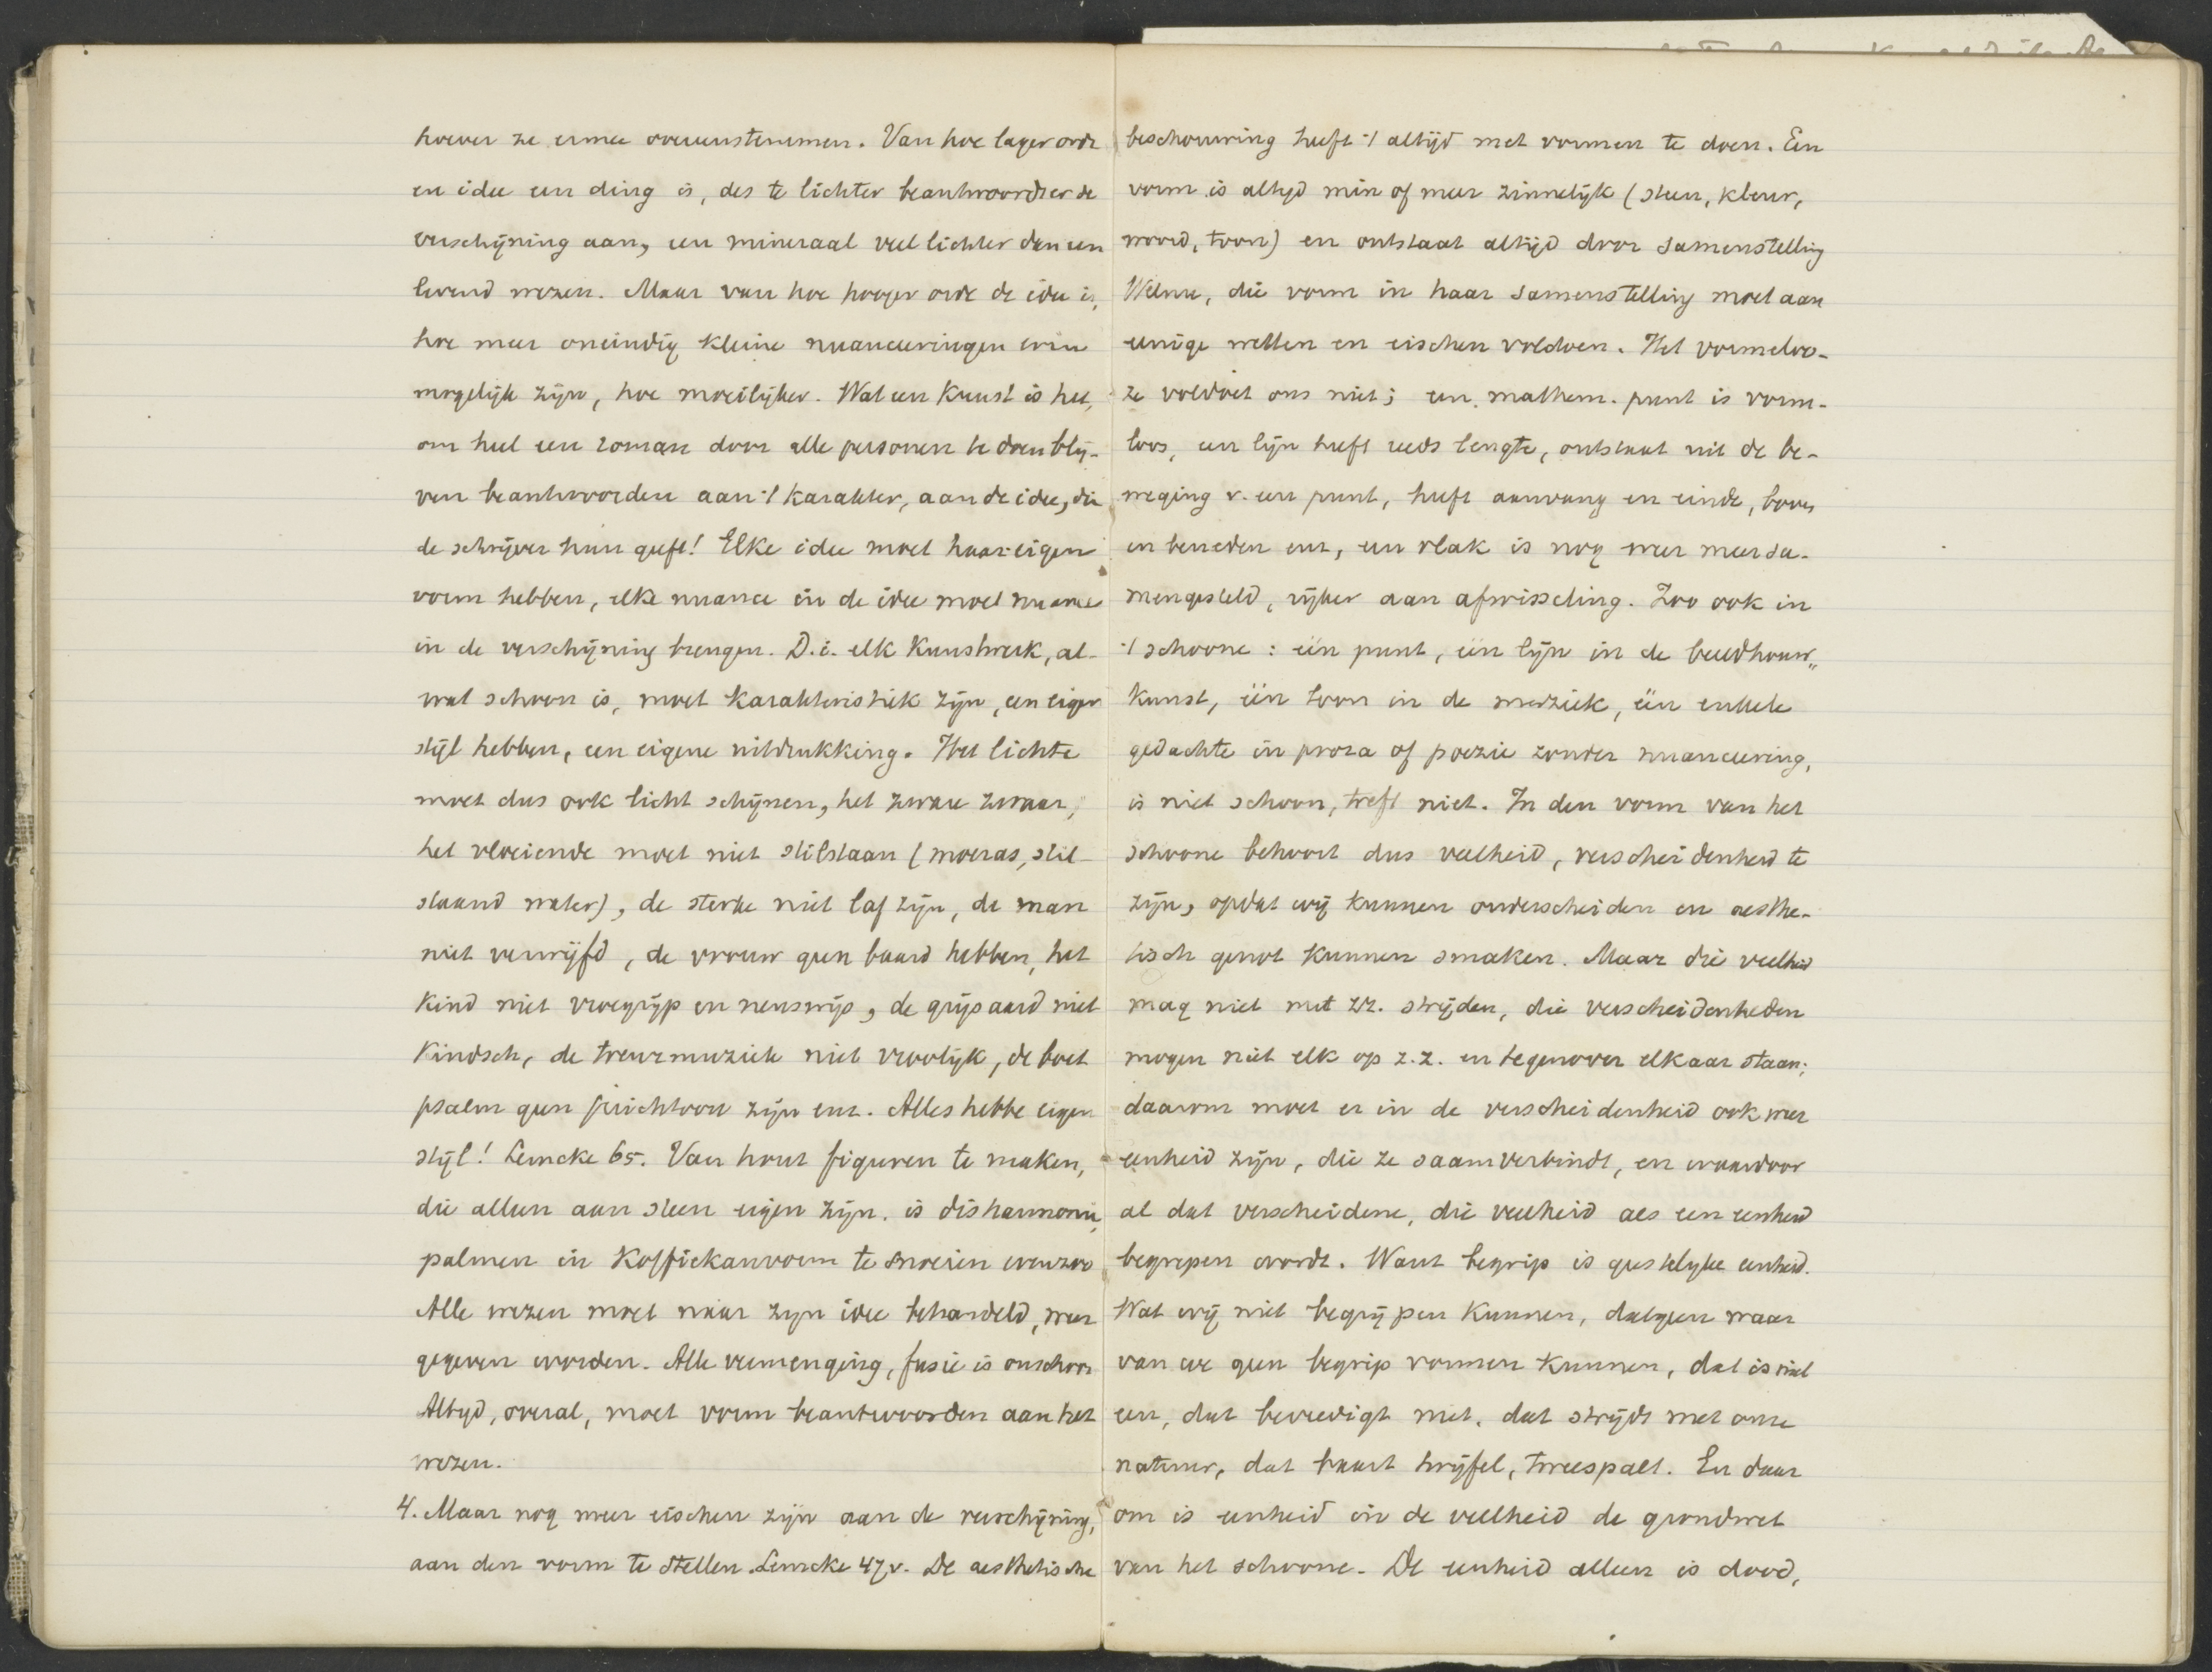 hoever ze ermee overeenstemmen. Van hoe lager orde
en idee een ding is, des te lichter beantwoordt er de
verschijning aan, een mineraal veel lichter dan een
levend wezen. Maar van hoe hooger orde de idee is,
hoe meer oneindig kleine nuanceeringen erin
mogelijk zijn, hoe moeilijker. Wat een kunst is het,
om heel een roman door alle personen te doen blij-
ven beantwoorden aan 't karakter, aan de idee, die
de schrijver hun geeft! Elke idee moet haar eigen
vorm hebben, elke nuance in de idee moet nuance
in de verschijning brengen. D.i. elk kunstwerk, al-
wat schoon is, moet karakteristiek zijn, een eigen
stijl hebben, een eigene uitdrukking. Het lichte
moet dus ook licht schijnen, het zware zwaar,
het vloeiende moet niet stilstaan (moeras, stil-
staand water), de sterke niet laf zijn, de man
niet verwijfd, de vrouw geen baard hebben, het
kind niet vroegrijp en neuswijs, de grijsaard niet
kindsch, de treurmuziek niet vroolijk, de boet
psalm geen juichtoon zijn enz. Alles hebbe eigen
stijl! Lemcke 65. Van hout figuren te maken,
die alleen aan steen eigen zijn, is disharmonie,
palmen in koffiekanvorm te snoeien evenzoo
Alle wezen moet naar zijn idee behandeld, weer
gegeven worden. Alle vermenging, fusie is onschoon
Altijd, overal, moet vorm beantwoorden aan het
wezen.
4. Maar nog meer eischen zijn aan de verschijning,
aan den vorm te stellen. Lemcke 47v. De aesthetische
beschouwing heeft 't altijd met vormen te doen. Een
vorm is altijd min of meer zinnelijk (steen, kleur,
woord, toon) en ontstaat altijd door samenstelling
Welnu, die vorm in haar samenstelling moet aan
eenige wetten en eischen voldoen. Het vormeloo-
ze voldoet ons niet; een mathem. punt is vorm-
loos, een lijn heeft reeds lengte, ontstaat uit de be-
weging v. een punt, heeft aanvang en einde, boven
en beneden enz, een vlak is nog weer meer sa-
mengesteld, rijker aan afwisseling. Zoo ook in
't schoone: één punt, één lijn in de beeldhouw-
kunst, één toon in de muziek, één enkele
gedachte in proza of poezie zonder nuanceering,
is niet schoon, treft niet. In den vorm van het
schoone behoort dus veelheid, verscheidenheid te
zijn, opdat wij kunnen onderscheiden en aesthe-
tisch genot kunnen smaken. Maar die veelheid
mag niet met zz. strijden, die verscheidenheden
mogen niet elk op z.z. en tegenover elkaar staan;
daarom moet er in de verscheidenheid ook weer
eenheid zijn, die ze saamverbindt, en waardoor
al dat verscheidene, die veelheid als een eenheid
begrepen wordt. Want begrip is geestelijke eenheid.
Wat wij niet begrijpen kunnen, datgeen waar
van we geen begrip vormen kunnen, dat is niet
een, dat bevredigt niet, dat strijdt met onze
natuur, dat baart twijfel, tweespalt. En daar
om is eenheid in de veelheid de grondwet
van het schoone. De eenheid alleen is dood,